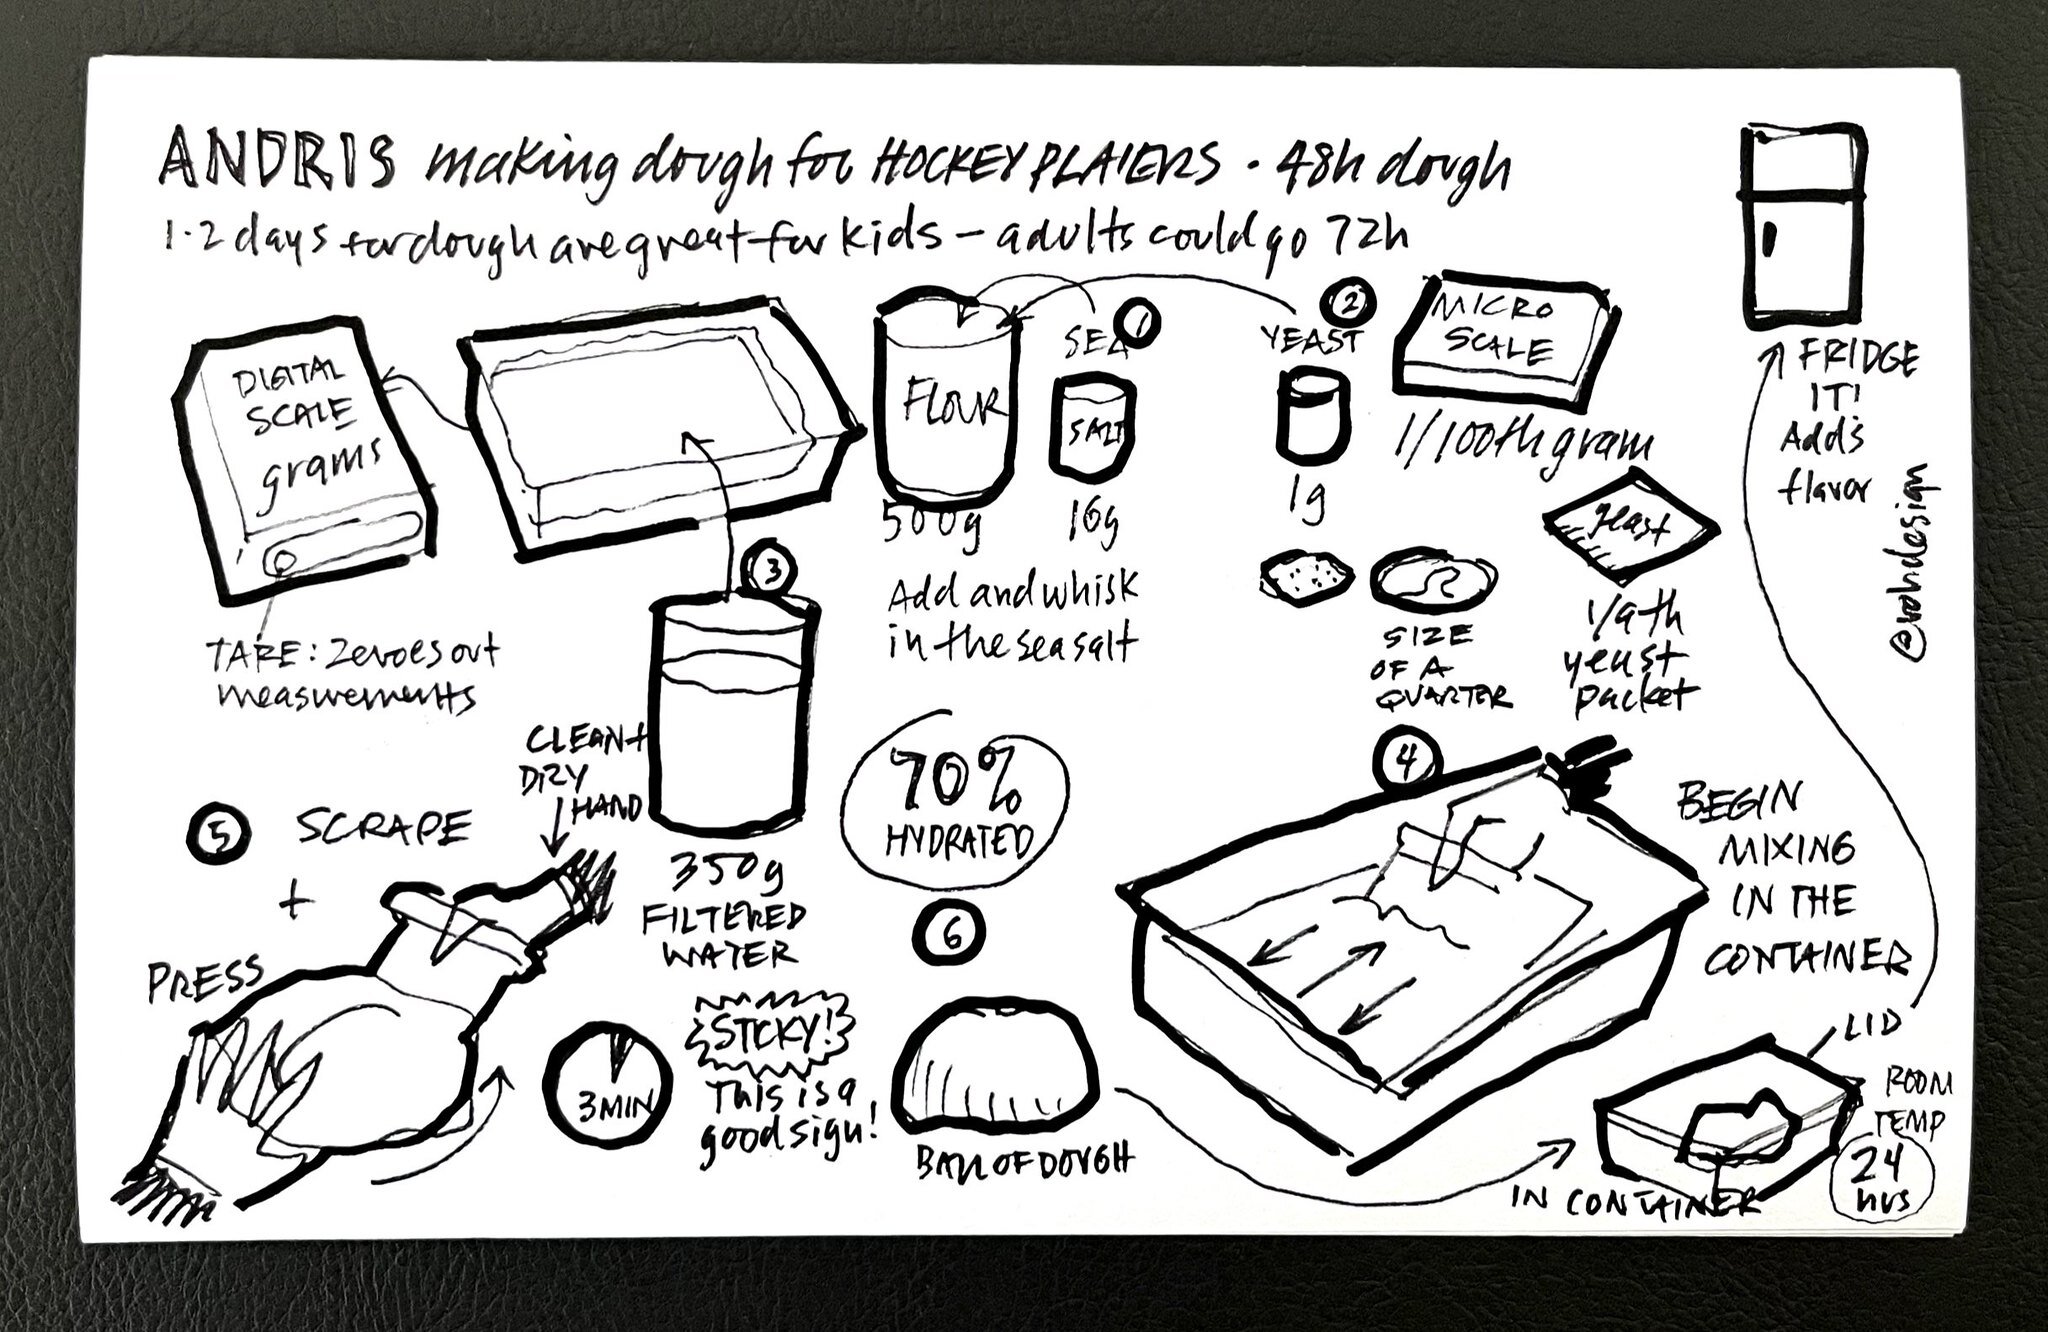 ANDRIS making dough for HOCKEY PLAIERS · 48h dough
1-2 days for dough are great for kids – adults could go 72h
DIGITAL
SCALE
grams
TARE: Zeroes out
measurements
FLOUR
500g
SEA
SALT
16g
1
Add and whisk
in the sea salt
2
YEAST
1g
MICRO
SCALE
1/100th gram
SIZE
OF A
QUARTER
yeast
1/9th
yeast
packet
FRIDGE
IT!
Adds
flavor
@rohdesign
3
350g
FILTERED
WATER
70%
HYDRATED
4
BEGIN
MIXING
IN THE
CONTAINER
5
SCRAPE
+
PRESS
CLEAN +
DRY
HAND
3 MIN
STCKY!
This is a
good sign!
6
BALL OF DOUGH
IN CONTAINER
LID
ROOM
TEMP
24
hrs